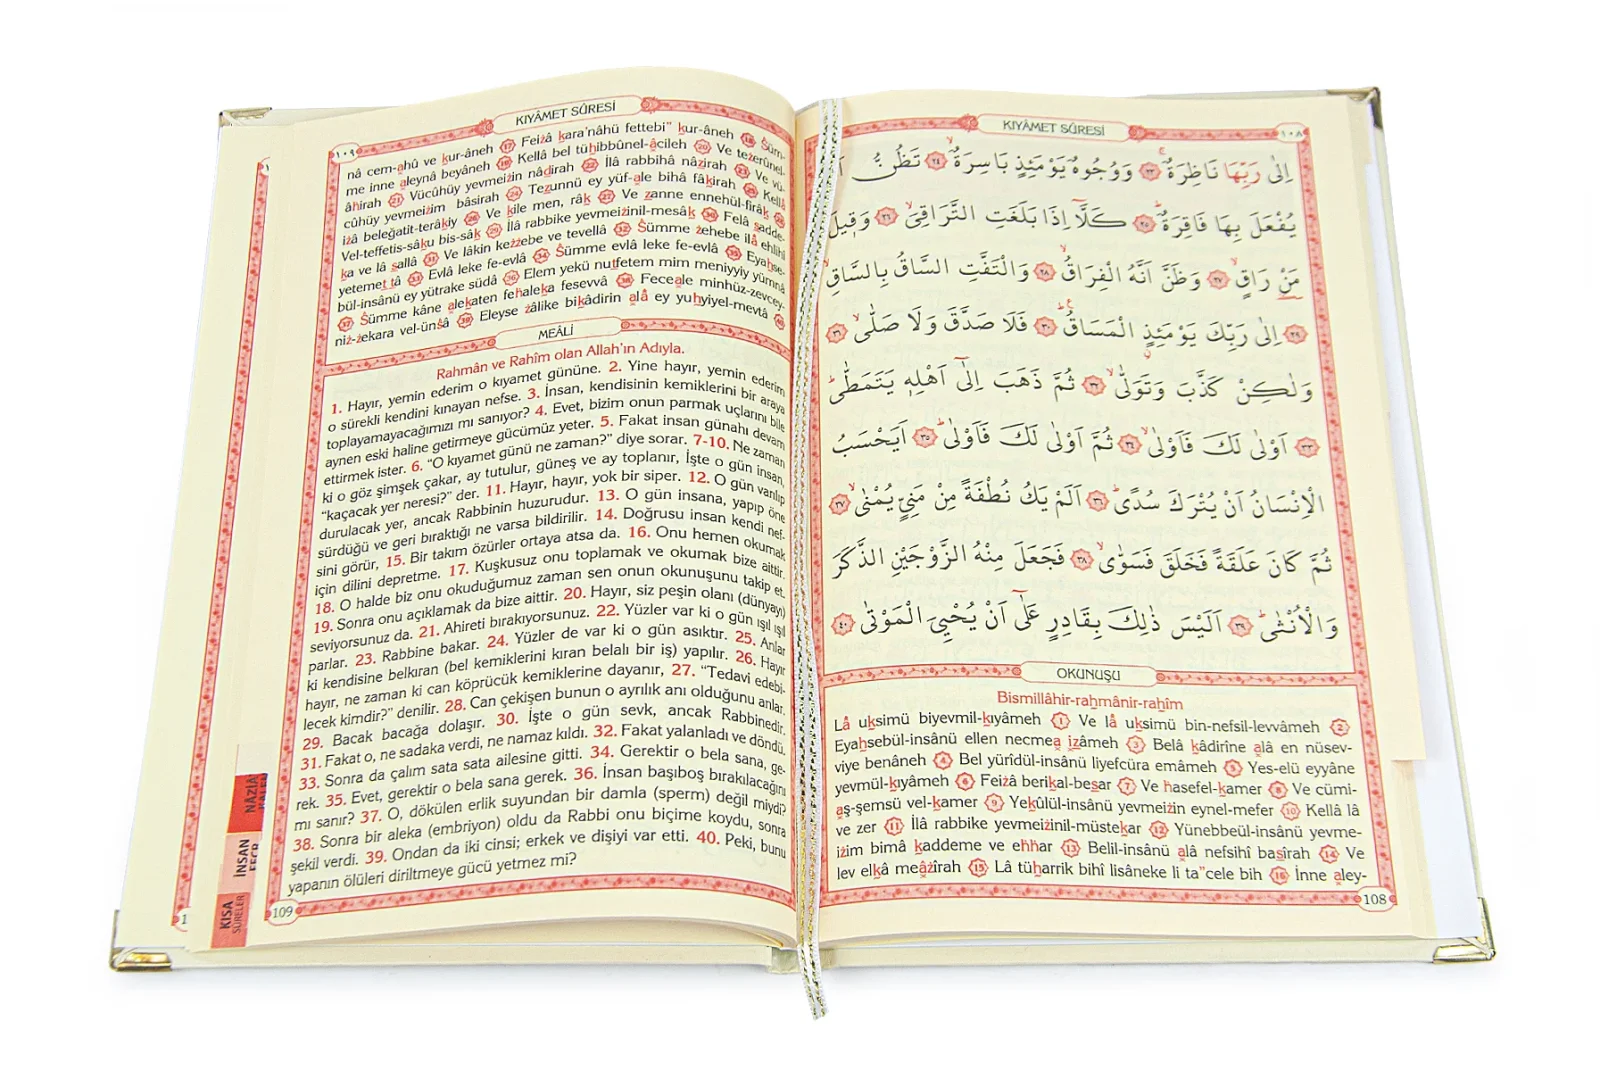 KIYÂMET SÛRESİ
١٠٨
اِلٰى رَبِّهَا نَاظِرَةٌۚ ﴿٢٣﴾ وَوُجُوهٌ يَوْمَئِذٍ بَاسِرَةٌۙ ﴿٢٤﴾ تَظُنُّ
يُفْعَلَ بِهَا فَاقِرَةٌۜ ﴿٢٥﴾ كَلَّٓا اِذَا بَلَغَتِ التَّرَاقِيَۙ ﴿٢٦﴾ وَق۪يلَ
مَنْ رَاقٍۙ ﴿٢٧﴾ وَظَنَّ اَنَّهُ الْفِرَاقُۙ ﴿٢٨﴾ وَالْتَفَّتِ السَّاقُ بِالسَّاقِۙ
﴿٢٩﴾ اِلٰى رَبِّكَ يَوْمَئِذٍ الْمَسَاقُۜ ﴿٣٠﴾ فَلَا صَدَّقَ وَلَا صَلّٰىۙ ﴿٣١﴾
وَلٰكِنْ كَذَّبَ وَتَوَلّٰىۙ ﴿٣٢﴾ ثُمَّ ذَهَبَ اِلٰٓى اَهْلِه۪ يَتَمَطّٰىۜ
﴿٣٣﴾ اَوْلٰى لَكَ فَاَوْلٰىۙ ﴿٣٤﴾ ثُمَّ اَوْلٰى لَكَ فَاَوْلٰىۜ ﴿٣٥﴾ اَيَحْسَبُ
الْاِنْسَانُ اَنْ يُتْرَكَ سُدًىۜ ﴿٣٦﴾ اَلَمْ يَكُ نُطْفَةً مِنْ مَنِيٍّ يُمْنٰىۙ ﴿٣٧﴾
ثُمَّ كَانَ عَلَقَةً فَخَلَقَ فَسَوّٰىۙ ﴿٣٨﴾ فَجَعَلَ مِنْهُ الزَّوْجَيْنِ الذَّكَرَ
وَالْاُنْثٰىۜ ﴿٣٩﴾ اَلَيْسَ ذٰلِكَ بِقَادِرٍ عَلٰٓى اَنْ يُحْيِيَ الْمَوْتٰى ﴿٤٠﴾
OKUNUŞU
Bismillâhir-rahmânir-rahîm
Lâ uksimü biyevmil-kıyâmeh 1 Ve lâ uksimü bin-nefsil-levvâmeh 2
Eyahsebül-insânü ellen necmea izâmeh 3 Belâ kâdirîne alâ en nüsev-
viye benâneh 4 Bel yürîdül-insânü liyefcüra emâmeh 5 Yes-elü eyyâne
yevmül-kıyâmeh 6 Feizâ berikal-besar 7 Ve hasefel-kamer 8 Ve cümi-
aş-şemsü vel-kamer 9 Yekûlül-insânü yevmeizin eynel-mefer 10 Kellâ lâ
ve zer 11 İlâ rabbike yevmeizinil-müstekar 12 Yünebbeül-insânü yevme-
izim bimâ kaddeme ve ehhar 13 Belil-insânü alâ nefsihî basîrah 14 Ve
lev elkâ meâzîrah 15 Lâ tüharrik bihî lisâneke li ta"cele bih 16 İnne aley-
108
KIYÂMET SÛRESİ
١٠٩
nâ cem-ahû ve kur-âneh 17 Feizâ kara'nâhü fettebi" kur-âneh 18 Süm-
me inne aleynâ beyâneh 19 Kellâ bel tühibbûnel-âcileh 20 Ve tezerûnel-
âhirah 21 Vücûhüy yevmeizin nâdirah 22 İlâ rabbihâ nâzirah 23 Ve vü-
cûhüy yevmeizim bâsirah 24 Tezunnü ey yüf-ale bihâ fâkirah 25 Kellâ
izâ beleğatit-terâkiy 26 Ve kîle men, râk 27 Ve zanne ennehül-firâk 28
Vel-teffetis-sâku bis-sâk 29 İlâ rabbike yevmeizinil-mesâk 30 Felâ sadde-
ka ve lâ sallâ 31 Ve lâkin kezzebe ve tevellâ 32 Sümme zehebe ilâ ehlihî
yetemettâ 33 Evlâ leke fe-evlâ 34 Sümme evlâ leke fe-evlâ 35 Eyahse-
bül-insânü ey yütrake südâ 36 Elem yekü nutfetem mim meniyyiy yümnâ
37 Sümme kâne alekaten fehaleka fesevvâ 38 Feceale minhüz-zevcey-
niz-zekara vel-ünsâ 39 Eleyse zâlike bikâdirin alâ ey yuhyiyel-mevtâ 40
MEÂLİ
Rahmân ve Rahîm olan Allah'ın Adıyla.
1. Hayır, yemin ederim o kıyamet gününe. 2. Yine hayır, yemin ederim
o sürekli kendini kınayan nefse. 3. İnsan, kendisinin kemiklerini bir araya
toplayamayacağımızı mı sanıyor? 4. Evet, bizim onun parmak uçlarını bile
aynen eski haline getirmeye gücümüz yeter. 5. Fakat insan günahı devam
ettirmek ister. 6. "O kıyamet günü ne zaman?" diye sorar. 7-10. Ne zaman
ki o göz şimşek çakar, ay tutulur, güneş ve ay toplanır, İşte o gün insan,
"kaçacak yer neresi?" der. 11. Hayır, hayır, yok bir siper. 12. O gün varılıp
durulacak yer, ancak Rabbinin huzurudur. 13. O gün insana, yapıp öne
sürdüğü ve geri bıraktığı ne varsa bildirilir. 14. Doğrusu insan kendi nef-
sini görür, 15. Bir takım özürler ortaya atsa da. 16. Onu hemen okumak
için dilini depretme. 17. Kuşkusuz onu toplamak ve okumak bize aittir.
18. O halde biz onu okuduğumuz zaman sen onun okunuşunu takip et.
19. Sonra onu açıklamak da bize aittir. 20. Hayır, siz peşin olanı (dünyayı)
seviyorsunuz da. 21. Ahireti bırakıyorsunuz. 22. Yüzler var ki o gün ışıl ışıl
parlar. 23. Rabbine bakar. 24. Yüzler de var ki o gün asıktır. 25. Anlar
ki kendisine belkıran (bel kemiklerini kıran belalı bir iş) yapılır. 26. Hayır
hayır, ne zaman ki can köprücük kemiklerine dayanır, 27. "Tedavi edebi-
lecek kimdir?" denilir. 28. Can çekişen bunun o ayrılık anı olduğunu anlar.
29. Bacak bacağa dolaşır. 30. İşte o gün sevk, ancak Rabbinedir.
31. Fakat o, ne sadaka verdi, ne namaz kıldı. 32. Fakat yalanladı ve döndü.
33. Sonra da çalım sata sata ailesine gitti. 34. Gerektir o bela sana, ge-
rek. 35. Evet, gerektir o bela sana gerek. 36. İnsan başıboş bırakılacağını
mı sanır? 37. O, dökülen erlik suyundan bir damla (sperm) değil miydi?
38. Sonra bir aleka (embriyon) oldu da Rabbi onu biçime koydu, sonra
şekil verdi. 39. Ondan da iki cinsi; erkek ve dişiyi var etti. 40. Peki, bunu
yapanın ölüleri diriltmeye gücü yetmez mi?
109
İNSAN
KISA
SÛRELER